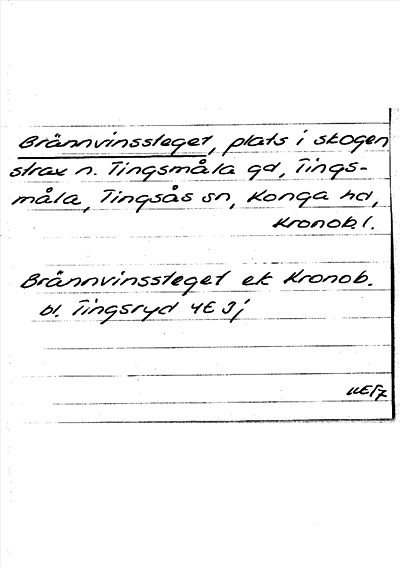 Brännvinssteget, plats i skogen
strax n. Tingsmåla gd, Tings-
måla, Tingsås sn, Konga hd,
Kronob.l.
Brännvinssteget ek Kronob.
bl. Tingsryd 4E 3j